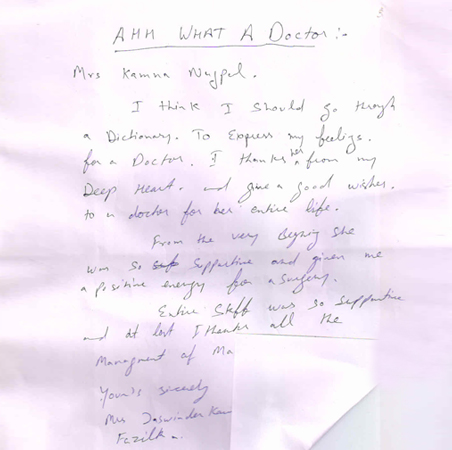 AHH WHAT A Doctor :-
Mrs Kamna Nagpal.
I think I should go through
a Dictionary. To Express my feelings.
for a Doctor. I thanks her from my
Deep Heart. and give a good wishes.
to a doctor for her entire life.
From the very Begning She
was so supportive and given me
a positive energy for a surgery.
Entire Staff was so Supportive
and at last I thanks all the
Managment of Ma
Your's sicerely
Mrs Jaswinder Kau
Fazilka.